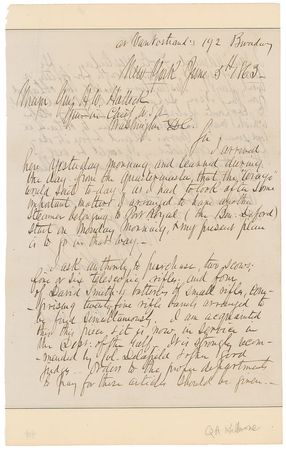 at Van Nostrand's 192 Broadway
New York June 5th 1863
Major Genl H. W. Halleck
Gen-in-Chief U.S.A.
Washington D.C.
Sir
I arrived
here yesterday morning and learned during
the day from the Quartermaster, that the "Arago"
would sail to-day & as I had to look after some
important matters I arranged to have another
steamer belonging to Port Royal (the Ben. Deford)
start on Monday morning, & my present plan
is to go in that way.
I ask authority to purchase two scows;
five or six telescopic rifles, and four
of David Smith's batteries of small rifles, com-
prising twenty five rifle barrels arranged to
be fired simultaneously. I am acquainted
with this piece, & it is now in service in
the Dept. of the Gulf. It is strongly recom-
mended by Col. Delafield & other good
judges. Orders to the proper departments
to pay for these articles should be given.
Q A Gillmore